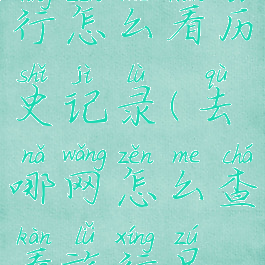 行怎么看历
shǐ jì lù qù
史记录(去
nǎ wǎng zěn me chá
哪网怎么查
kàn lǚ xíng zú
看旅行足